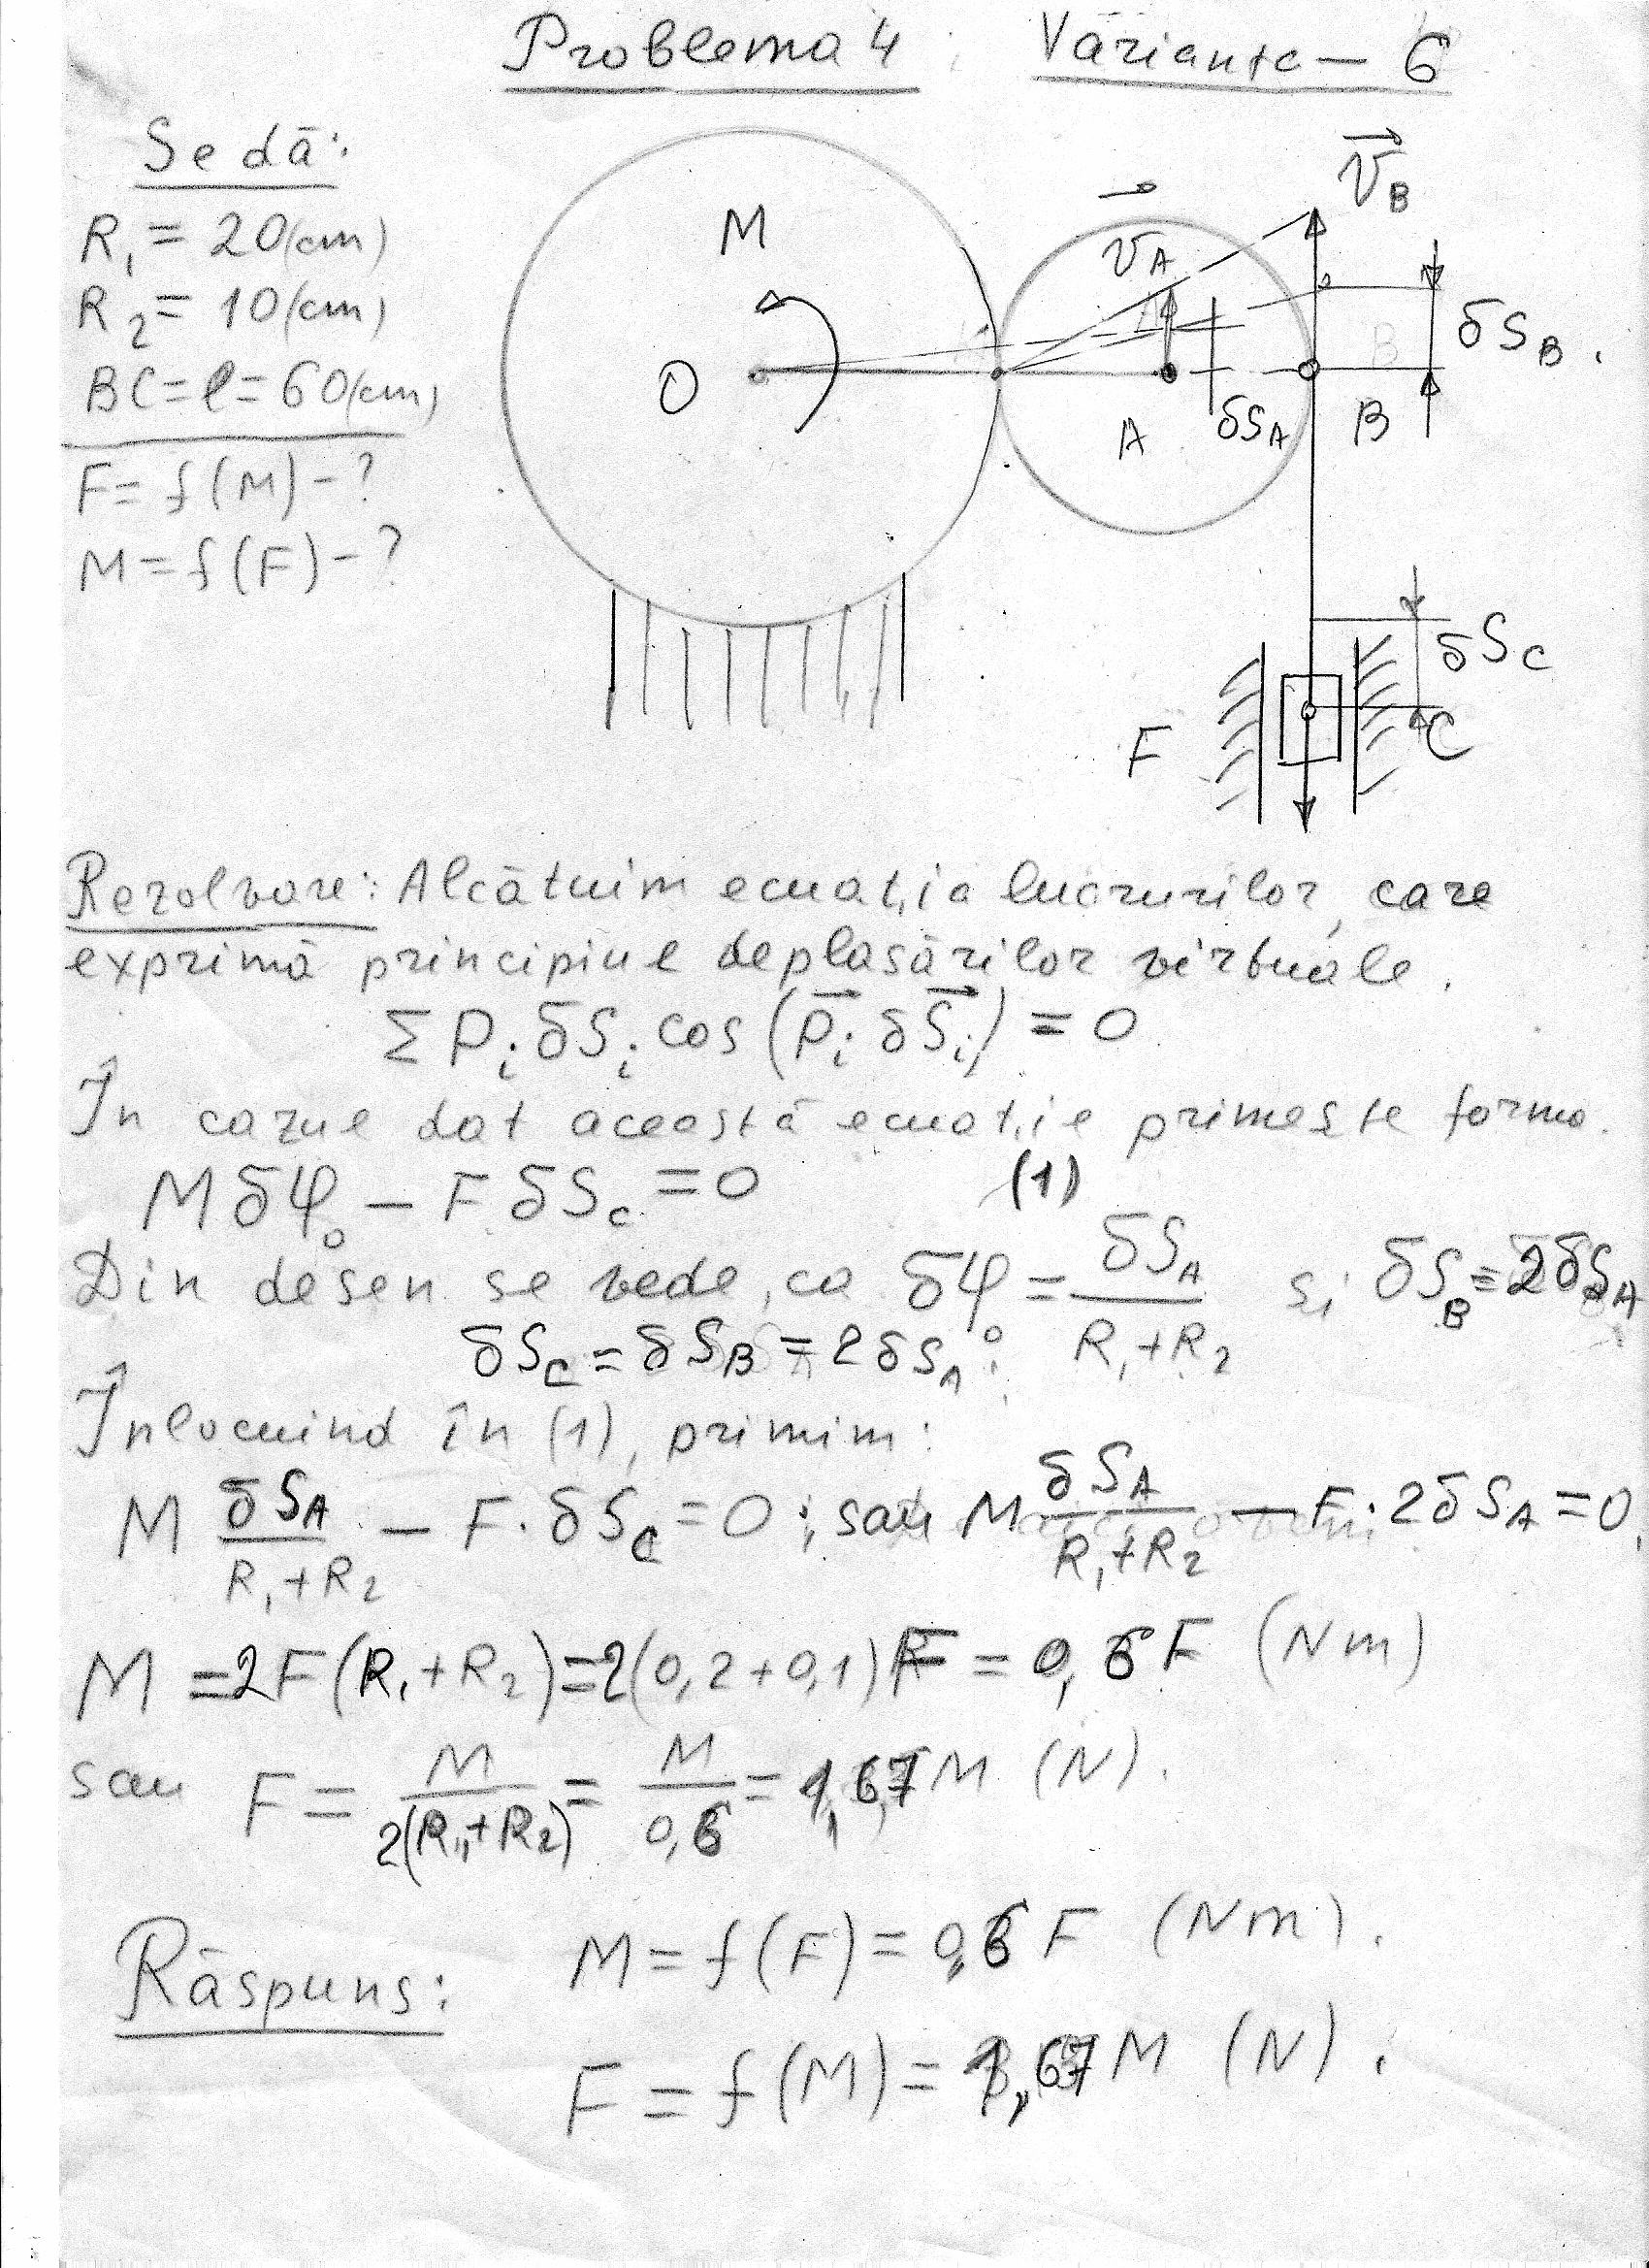 Problema 4 Varianta – 6
Se dă:
R₁ = 20(cm)
R₂ = 10(cm)
BC = ℓ = 60(cm)
F = f(M) – ?
M = f(F) – ?
M
O
v_A
v_B
A
δS_A
B
δS_B.
δS_C
C
F
Rezolvare: Alcătuim ecuația lucrurilor, care
exprimă principiul deplasărilor virtuale.
Σ P_i δS_i cos(P_i δS_i) = 0
În cazul dat această ecuație primește forma.
M δφ₀ – F δS_C = 0 (1)
Din desen se vede, ca δφ₀ = δS_A / (R₁+R₂) și δS_B = 2δS_A
δS_C = δS_B = 2δS_A;
Înlocuind în (1), primim:
M δS_A / (R₁+R₂) – F·δS_C = 0; sau M δS_A / (R₁+R₂) – F·2δS_A = 0,
M = 2F(R₁+R₂) = 2(0,2+0,1)F = 0,6F (Nm)
sau F = M / 2(R₁+R₂) = M / 0,6 = 1,67M (N).
Răspuns: M = f(F) = 0,6 F (Nm).
F = f(M) = 1,67 M (N).